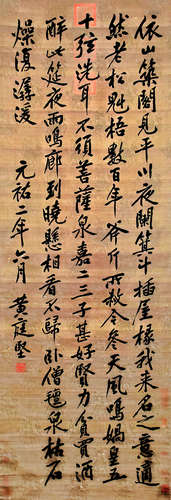 依山築閣見平川夜闌箕斗插屋椽我來名之意適
然老松魁梧數百年斧斤所赦今參天風鳴媧皇五
十弦洗耳不須菩薩泉嘉二三子甚好賢力貧買酒
醉此筵夜雨鳴廊到曉懸相看不歸臥僧氈泉枯石
燥復潺湲 元祐二年六月 黃庭堅